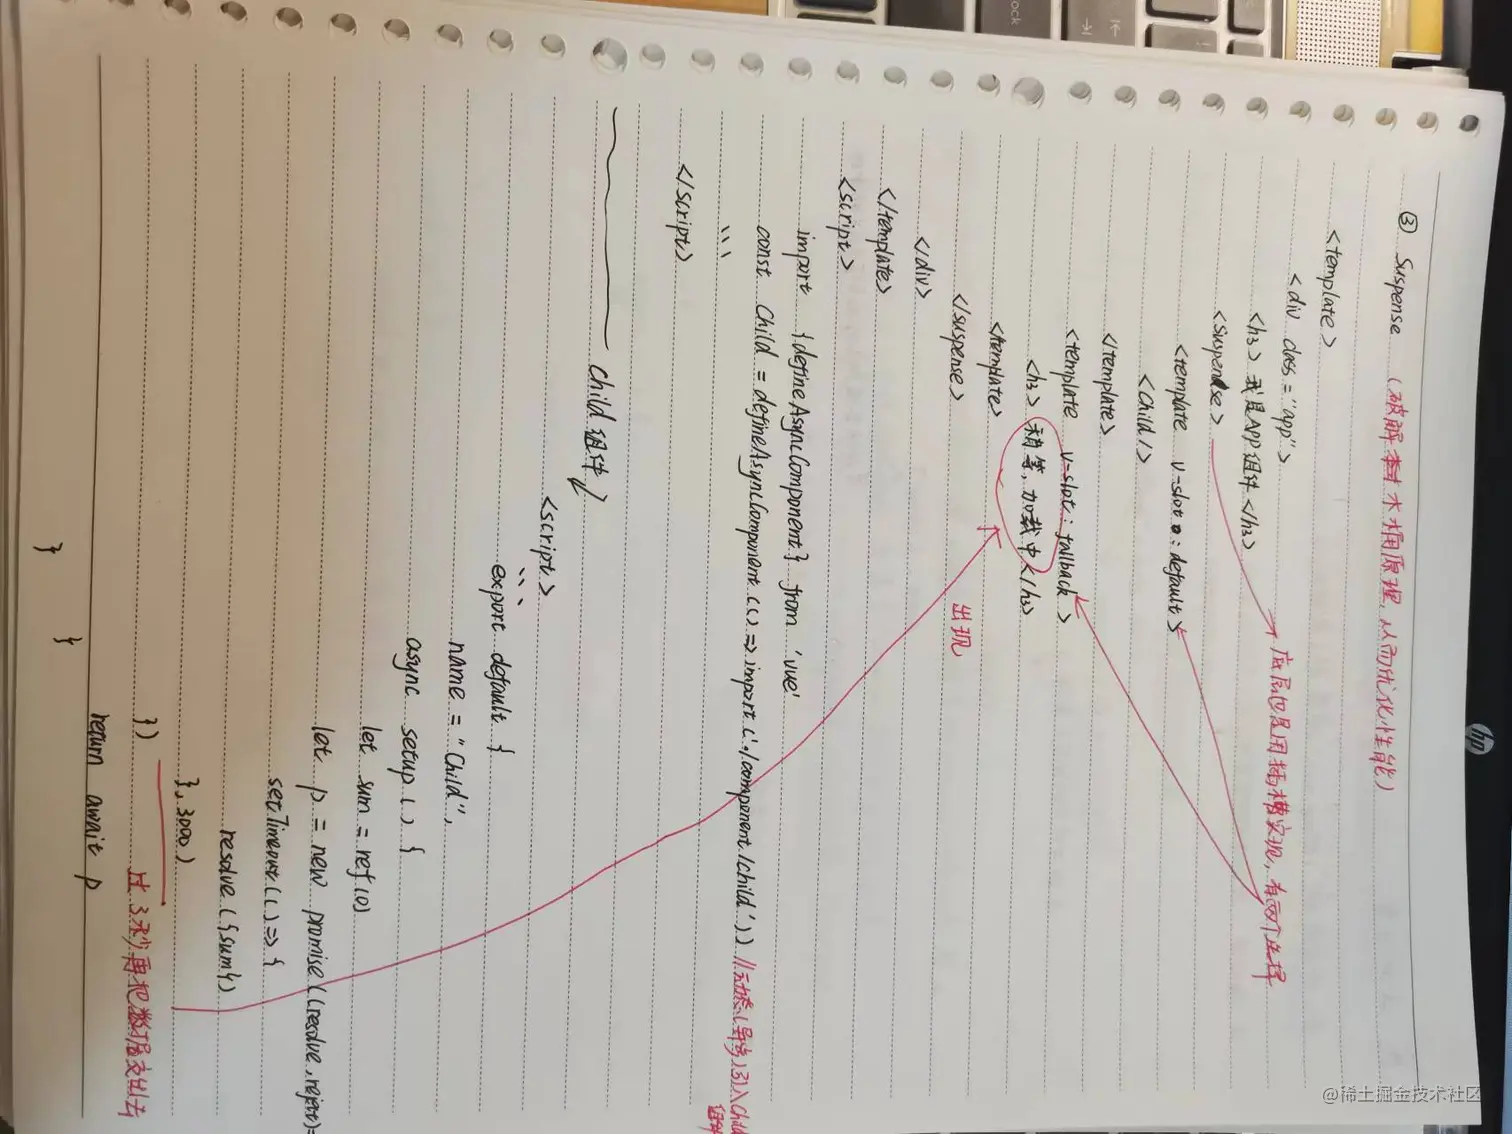 ③ Suspense （破解木桶原理，从而优化性能）
<template>
<div class="app">
<h3>我是APP组件</h3>
<Suspense>
底层也是用插槽实现，有两个选择
<template v-slot:default>
<Child/>
</template>
<template v-slot:fallback>
<h3>稍等，加载中</h3>
<template>
出现
</suspense>
</div>
</template>
<script>
import {defineAsyncComponent} from 'vue'
const Child = defineAsyncComponent(()=>import('./component/child')) //动态(异步)引入Child组件
...
</script>
Child组件
<script>
...
export default {
name = "Child",
async setup() {
let sum = ref(0)
let p = new promise((resolve,reject)=
setTimeout(()=>{
resolve({sum})
},3000)
})
过3秒再把数据交出去
return await p
}
}
hp
@稀土掘金技术社区